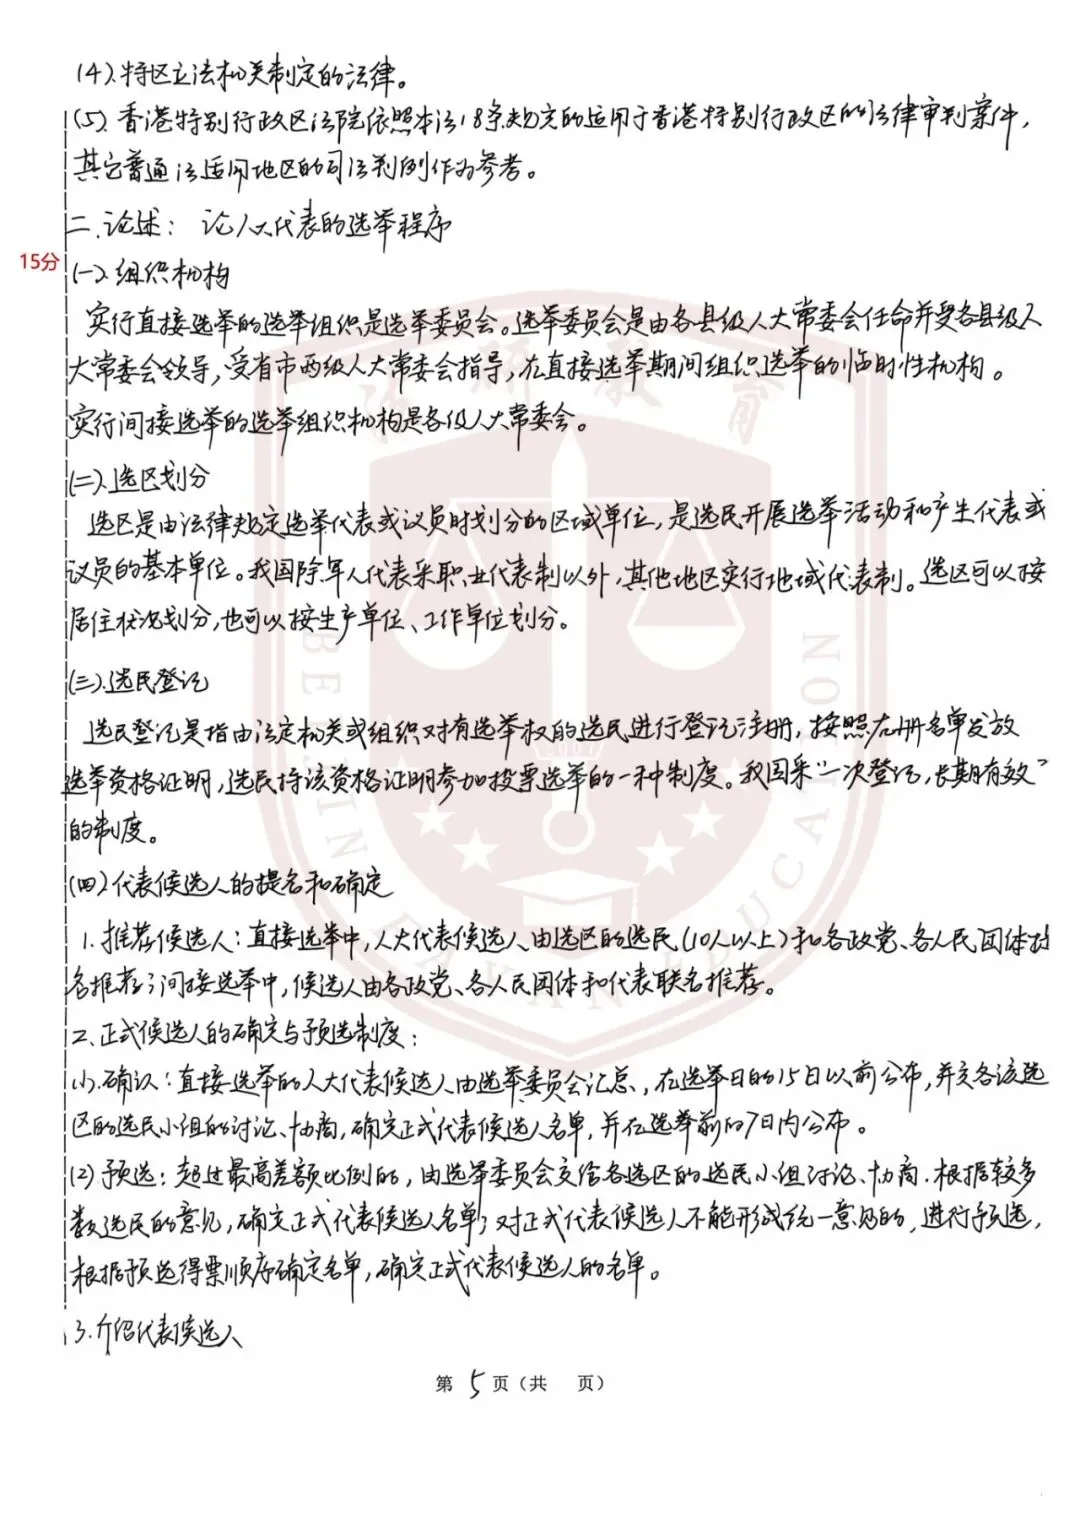 (4).特区立法机关制定的法律。
(5).香港特别行政区法院依照本法18条规定的适用于香港特别行政区的法律审判案件,
其它普通法适用地区的司法判例作为参考。
二.论述: 论人大代表的选举程序
15分
(一).组织机构
实行直接选举的选举组织是选举委员会。选举委员会是由各县级人大常委会任命并受各县级人
大常委会领导,受省市两级人大常委会指导,在直接选举期间组织选举的临时性机构。
实行间接选举的选举组织机构是各级人大常委会。
(二).选区划分
选区是由法律规定选举代表或议员时划分的区域单位,是选民开展选举活动和产生代表或
议员的基本单位。我国除军人代表采职业代表制以外,其他地区实行地域代表制。选区可以按
居住状况划分,也可以按生产单位、工作单位划分。
(三).选民登记
选民登记是指由法定机关或组织对有选举权的选民进行登记注册,按照在册名单发放
选举资格证明,选民持该资格证明参加投票选举的一种制度。我国采“一次登记,长期有效”
的制度。
(四)代表候选人的提名和确定
1.推荐候选人:直接选举中,人大代表候选人由选区的选民(10人以上)和各政党、各人民团体
名推荐;间接选举中,候选人由各政党、各人民团体和代表联名推荐。
2、正式候选人的确定与预选制度:
(1).确认:直接选举的人大代表候选人由选举委员会汇总,在选举日的15日以前公布,并交各该选
区的选民小组的讨论、协商,确定正式代表候选人名单,并在选举前的7日内公布。
(2)预选:超过最高差额比例的,由选举委员会交给各选区的选民小组讨论、协商.根据较多
数选民的意见,确定正式代表候选人名单;对正式代表候选人不能形成统一意见的,进行预选,
根据预选得票顺序确定名单,确定正式代表候选人的名单。
3.介绍代表候选人
第 5 页(共 页)
BEIJING
EDUCATION
教育